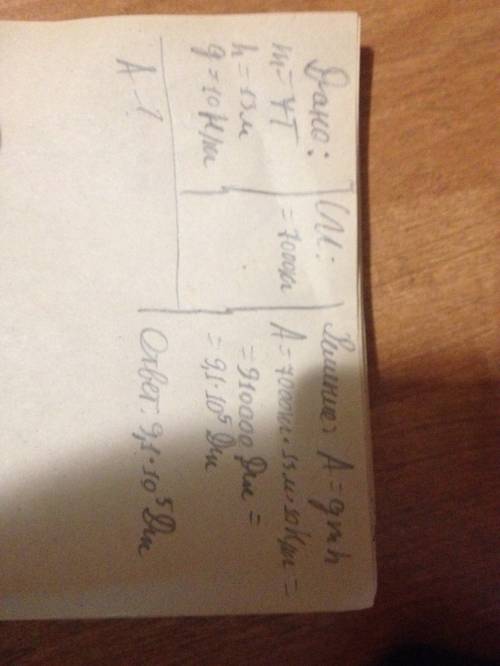 Дано:
m = 7т
h = 13м
g = 10 Н/кг
А - ?
СИ:
= 7000кг
Решение: A = gmh
A = 7000кг · 13м · 10 Н/кг =
= 910000 Дж =
= 9,1 · 10⁵ Дж
Ответ: 9,1 · 10⁵ Дж